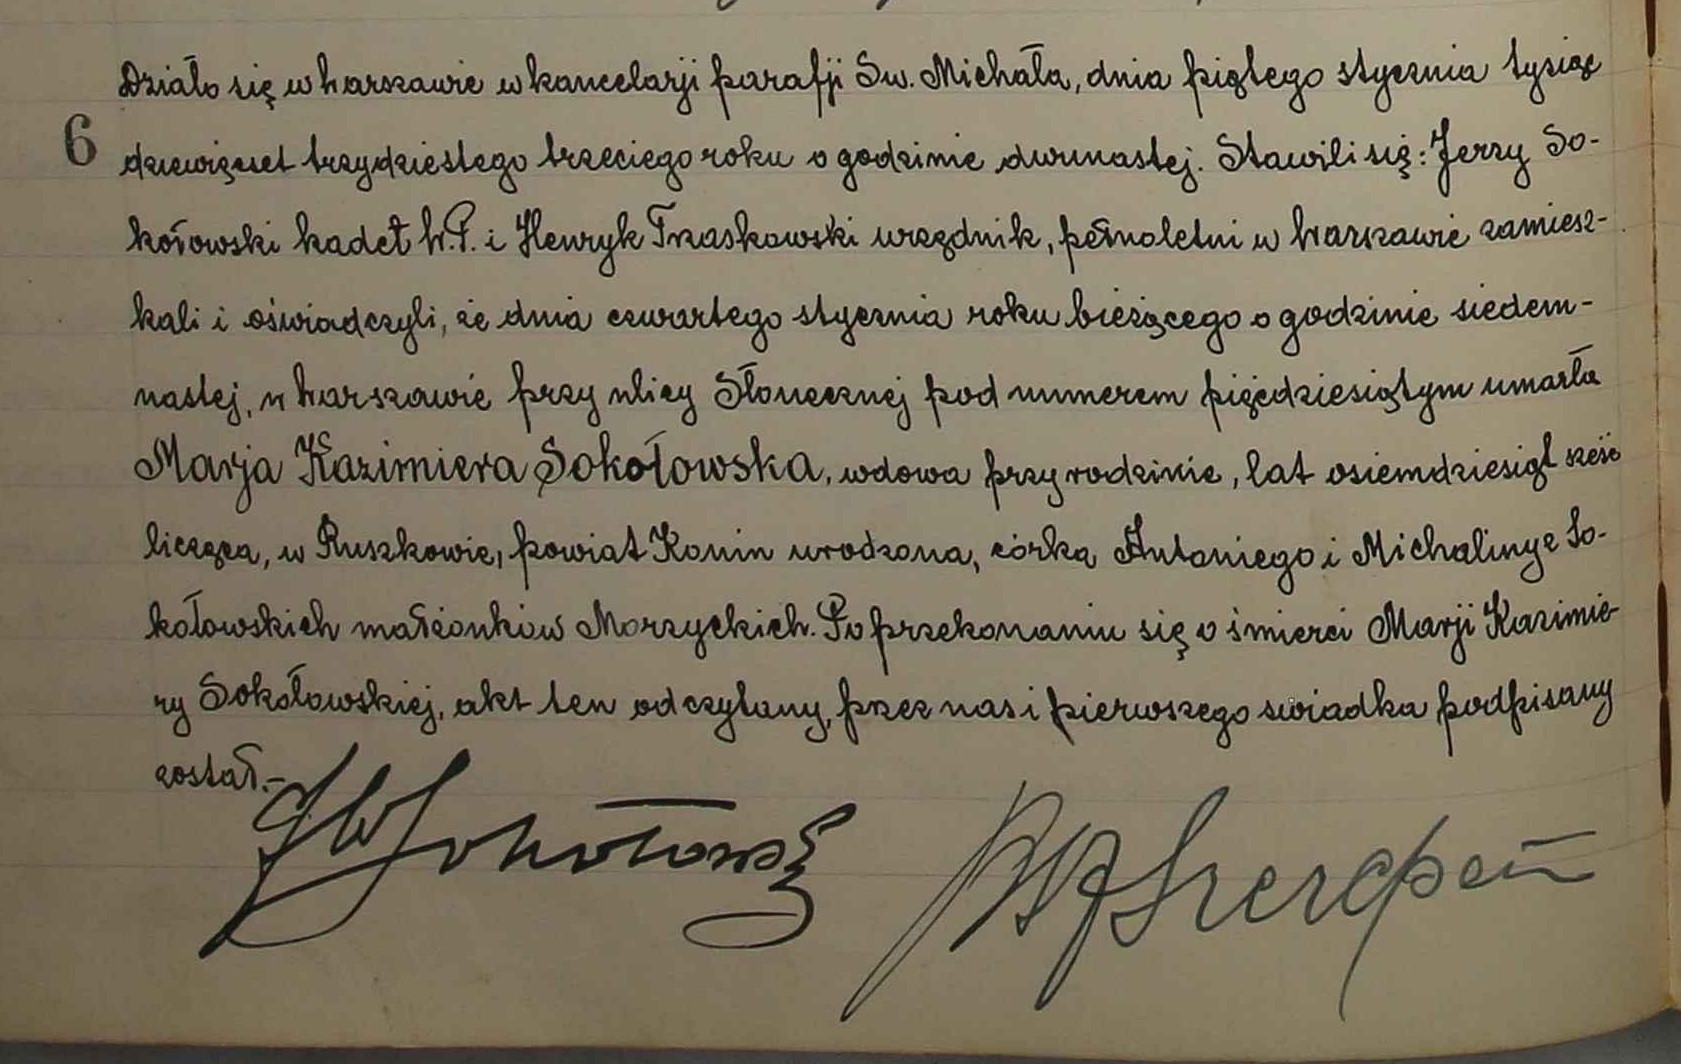 Działo się w Warszawie w kancelarji parafji Św. Michała, dnia piątego stycznia tysiąc
6 dziewięćset trzydziestego trzeciego roku o godzinie dwunastej. Stawili się: Jerzy So-
kołowski kadet W.P. i Henryk Trzaskowski urzędnik, pełnoletni w Warszawie zamiesz-
kali i oświadczyli, że dnia czwartego stycznia roku bieżącego o godzinie siedem-
nastej, w Warszawie przy ulicy Słonecznej pod numerem pięćdziesiątym umarła
Marja Kazimiera Sokołowska, wdowa przy rodzinie, lat osiemdziesiąt sześć
licząca, w Ruszkowie, powiat Konin urodzona, córka Antoniego i Michaliny z So-
kołowskich małżonków Morzyckich. Po przekonaniu się o śmierci Marji Kazimie-
ry Sokołowskiej, akt ten odczytany, przez nas i pierwszego świadka podpisany
został.-
Sokołowski